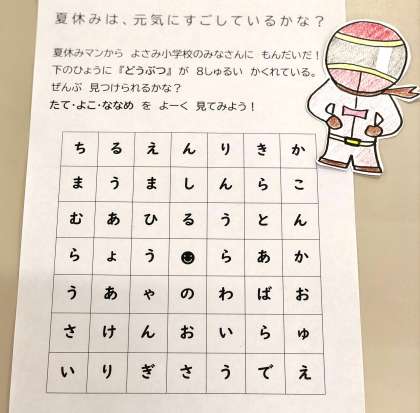 夏休みは、元気にすごしているかな？
夏休みマンから よさみ小学校のみなさんに もんだいだ！
下のひょうに『どうぶつ』が 8しゅるい かくれている。
ぜんぶ 見つけられるかな？
たて・よこ・ななめ を よーく 見てみよう！
ち る え ん り き か
ま う ま し ん ら こ
む あ ひ る う と ん
ら ょ う ☻ ら あ か
う あ ゃ の わ ば お
さ け ん お い ら ゅ
い り ぎ さ う で え